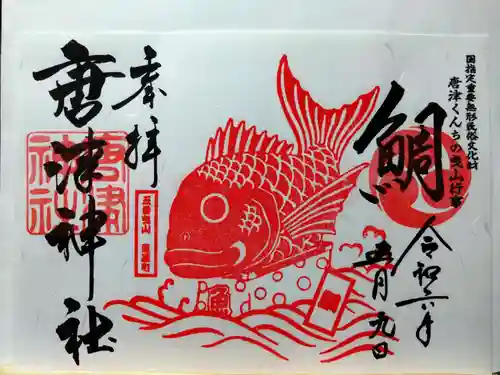 国指定重要無形民俗文化財
唐津くんちの曳山行事
鯛
令和六年
五月九日
奉拝
五番曳山 魚屋町
魚
唐津神社
唐津
神社